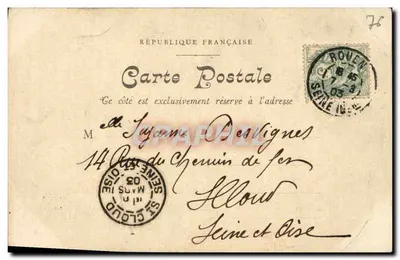 76
RÉPUBLIQUE FRANÇAISE
Carte Postale
Ce côté est exclusivement réservé à l'adresse
ROUEN
03
SEINE INFRE
Melle Suzanne Desvignes
14 Rue du Chemin de fer
St Cloud
Seine et Oise
ST CLOUD
MARS
03
SEINE ET OISE